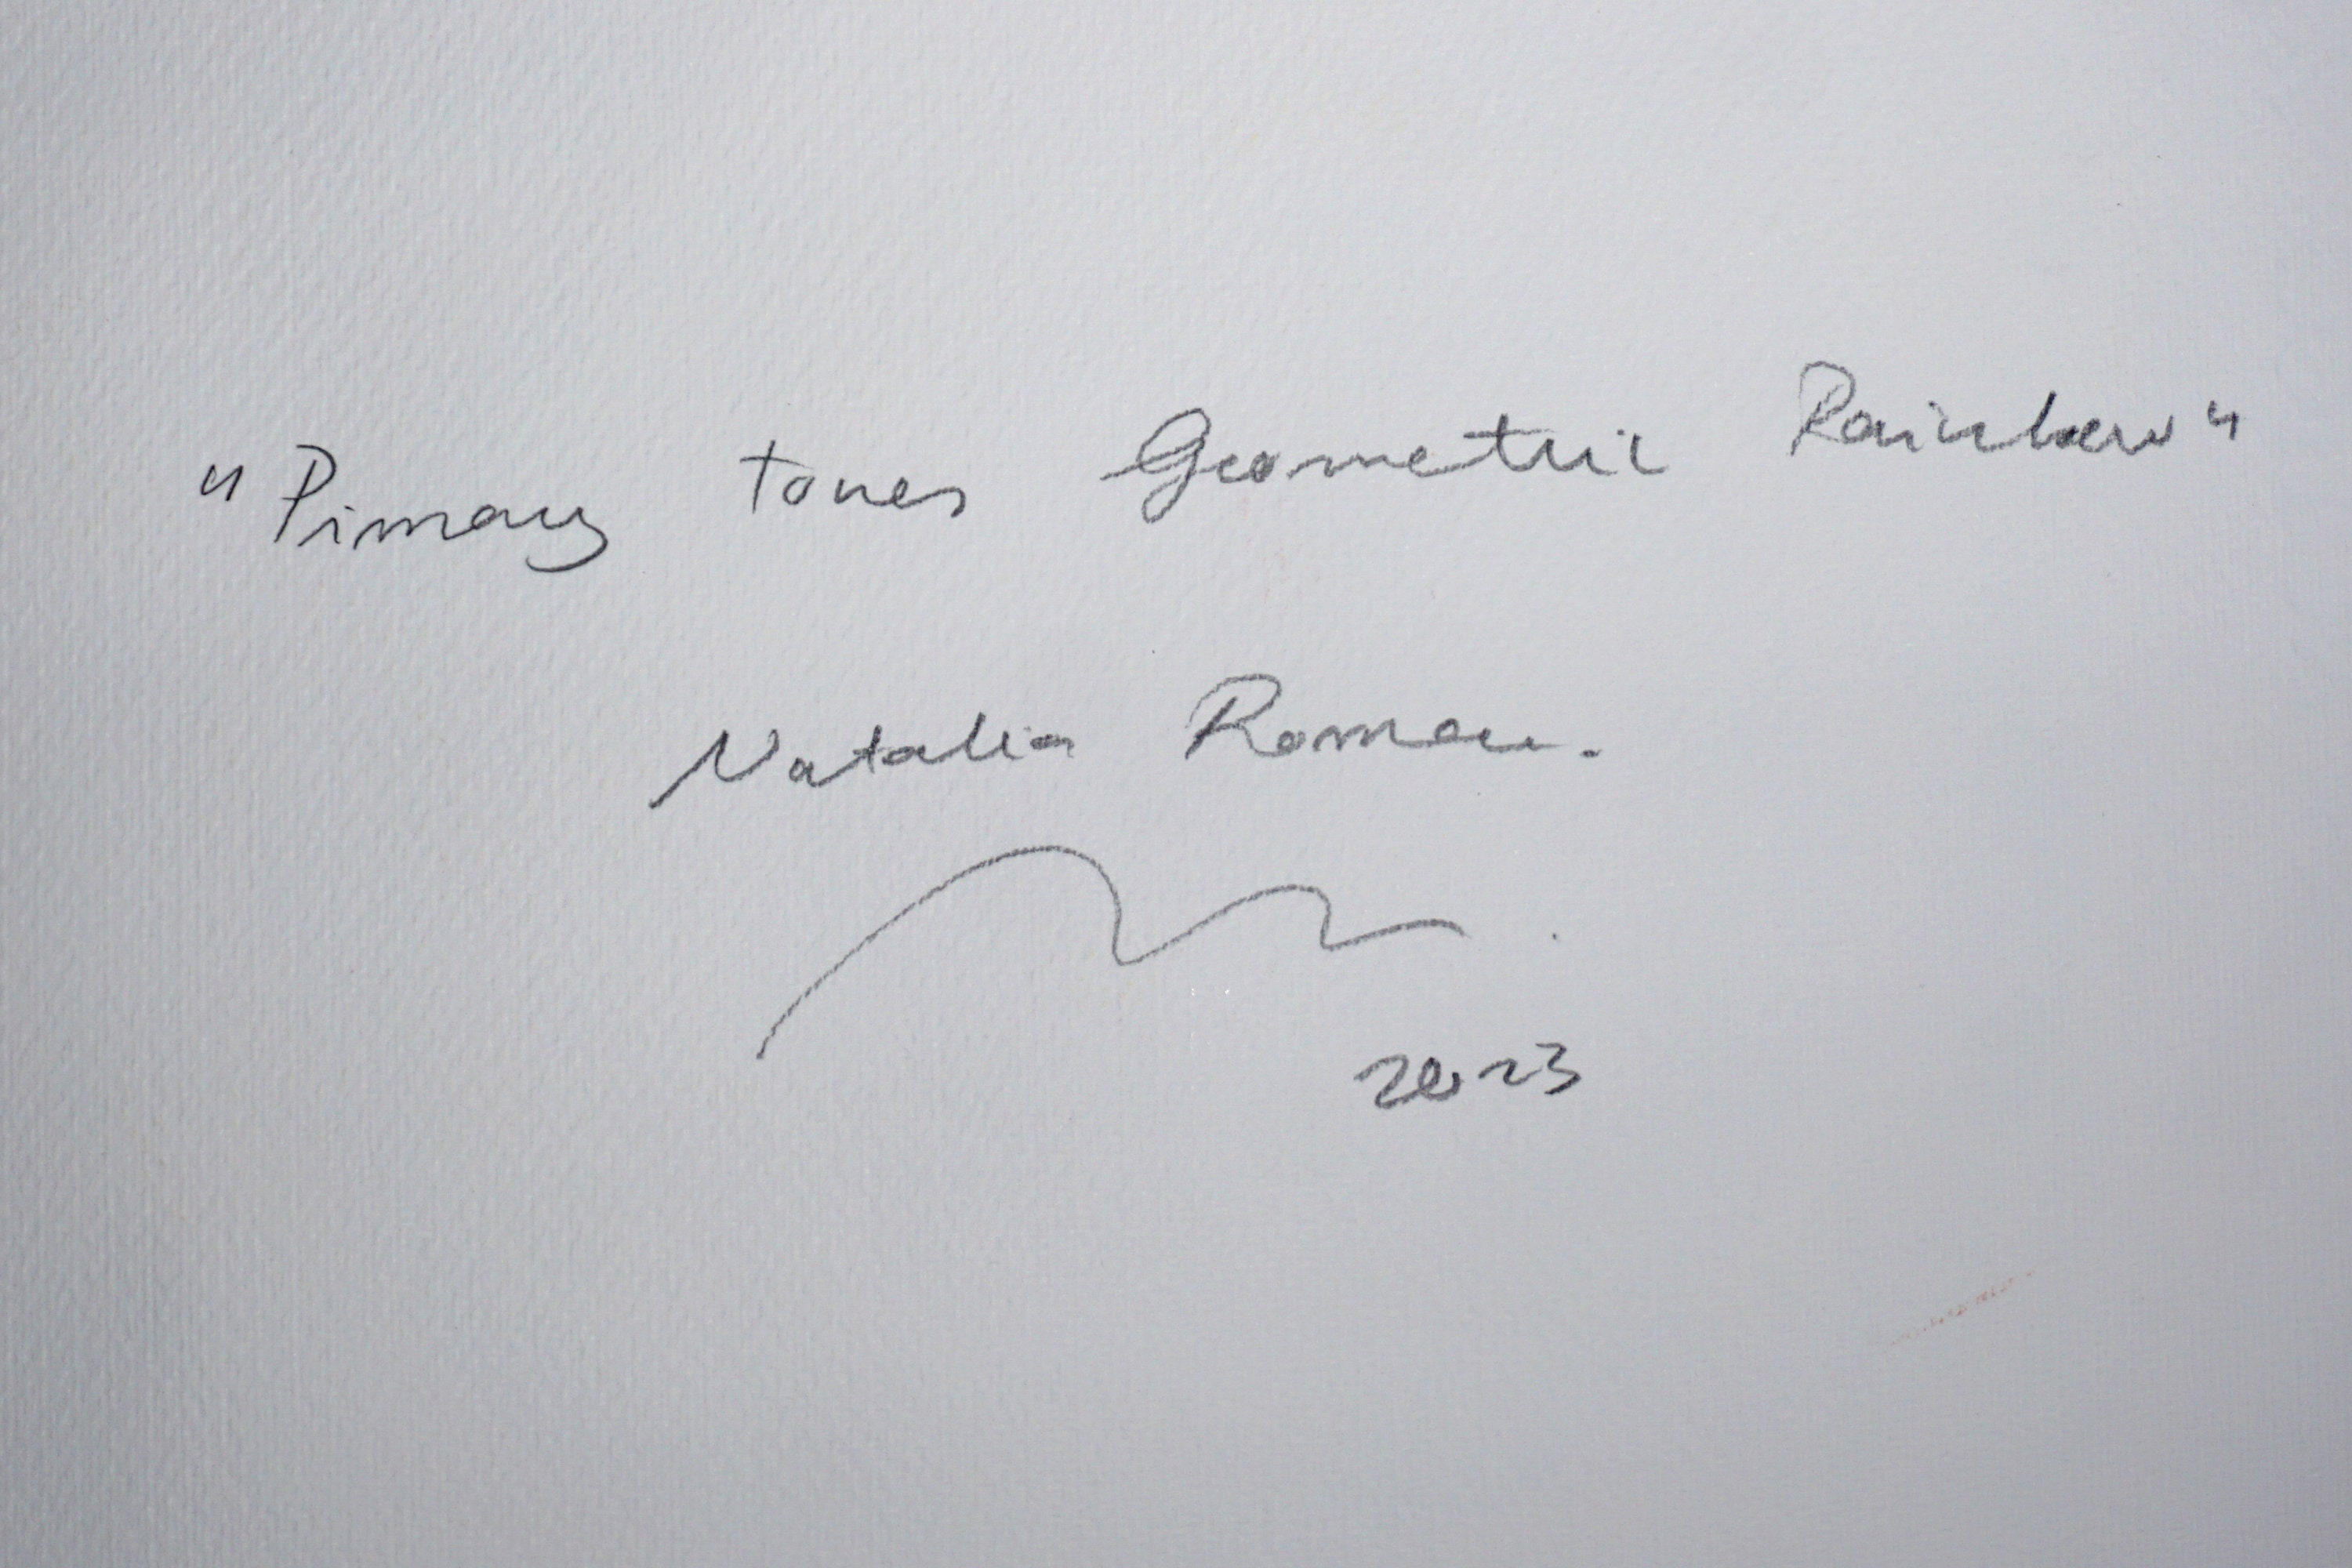 "Pimary tones Geometric Rainbow"
Natalia Roman.
2023